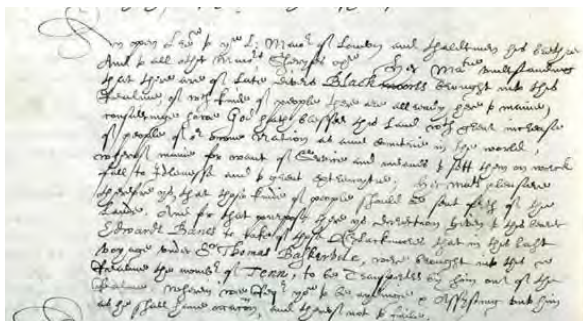 An open Lre to ye L: Maiour of London and thaldermen his brethren
And to all other Maiours Sheryfes &c. Her Matie understanding
that there are of late divers Blackmoores brought into this
Realme, of wch kinde of people there are allready here to manie,
consideringe howe God hath blessed this land wth great increase
of people of or owne Nation as anie countrie in the world,
wherof manie for want of Service and meanes to sett them on worck
fall to Idlenesse and to great extremytie; her Mats pleasure
therefore ys, that those kinde of people should be sent forth of the
lande. And for that purpose there ys direction given to this bearer
Edwarde Banes to take of those Blackmoores that in this last
voyage under Sr Thomas Baskervile, were brought into this
Realme the nomber of Tenn, to be Transported by him out of the
Realme. Wherein wee Req: you to be aydinge & Assysting unto him
as he shall have occacion, and thereof not to faile.